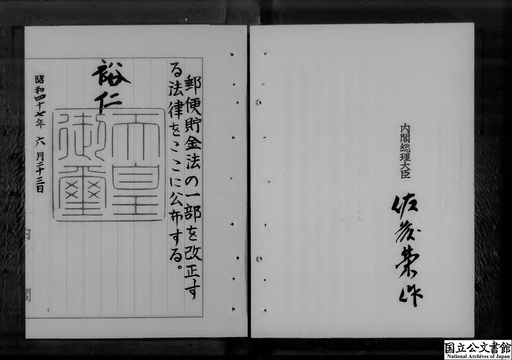 郵便貯金法の一部を改正す
る法律をここに公布する。
裕仁
天皇
御璽
昭和四十七年 六月二十三日
内閣総理大臣
佐藤榮作
国立公文書館
National Archives of Japan